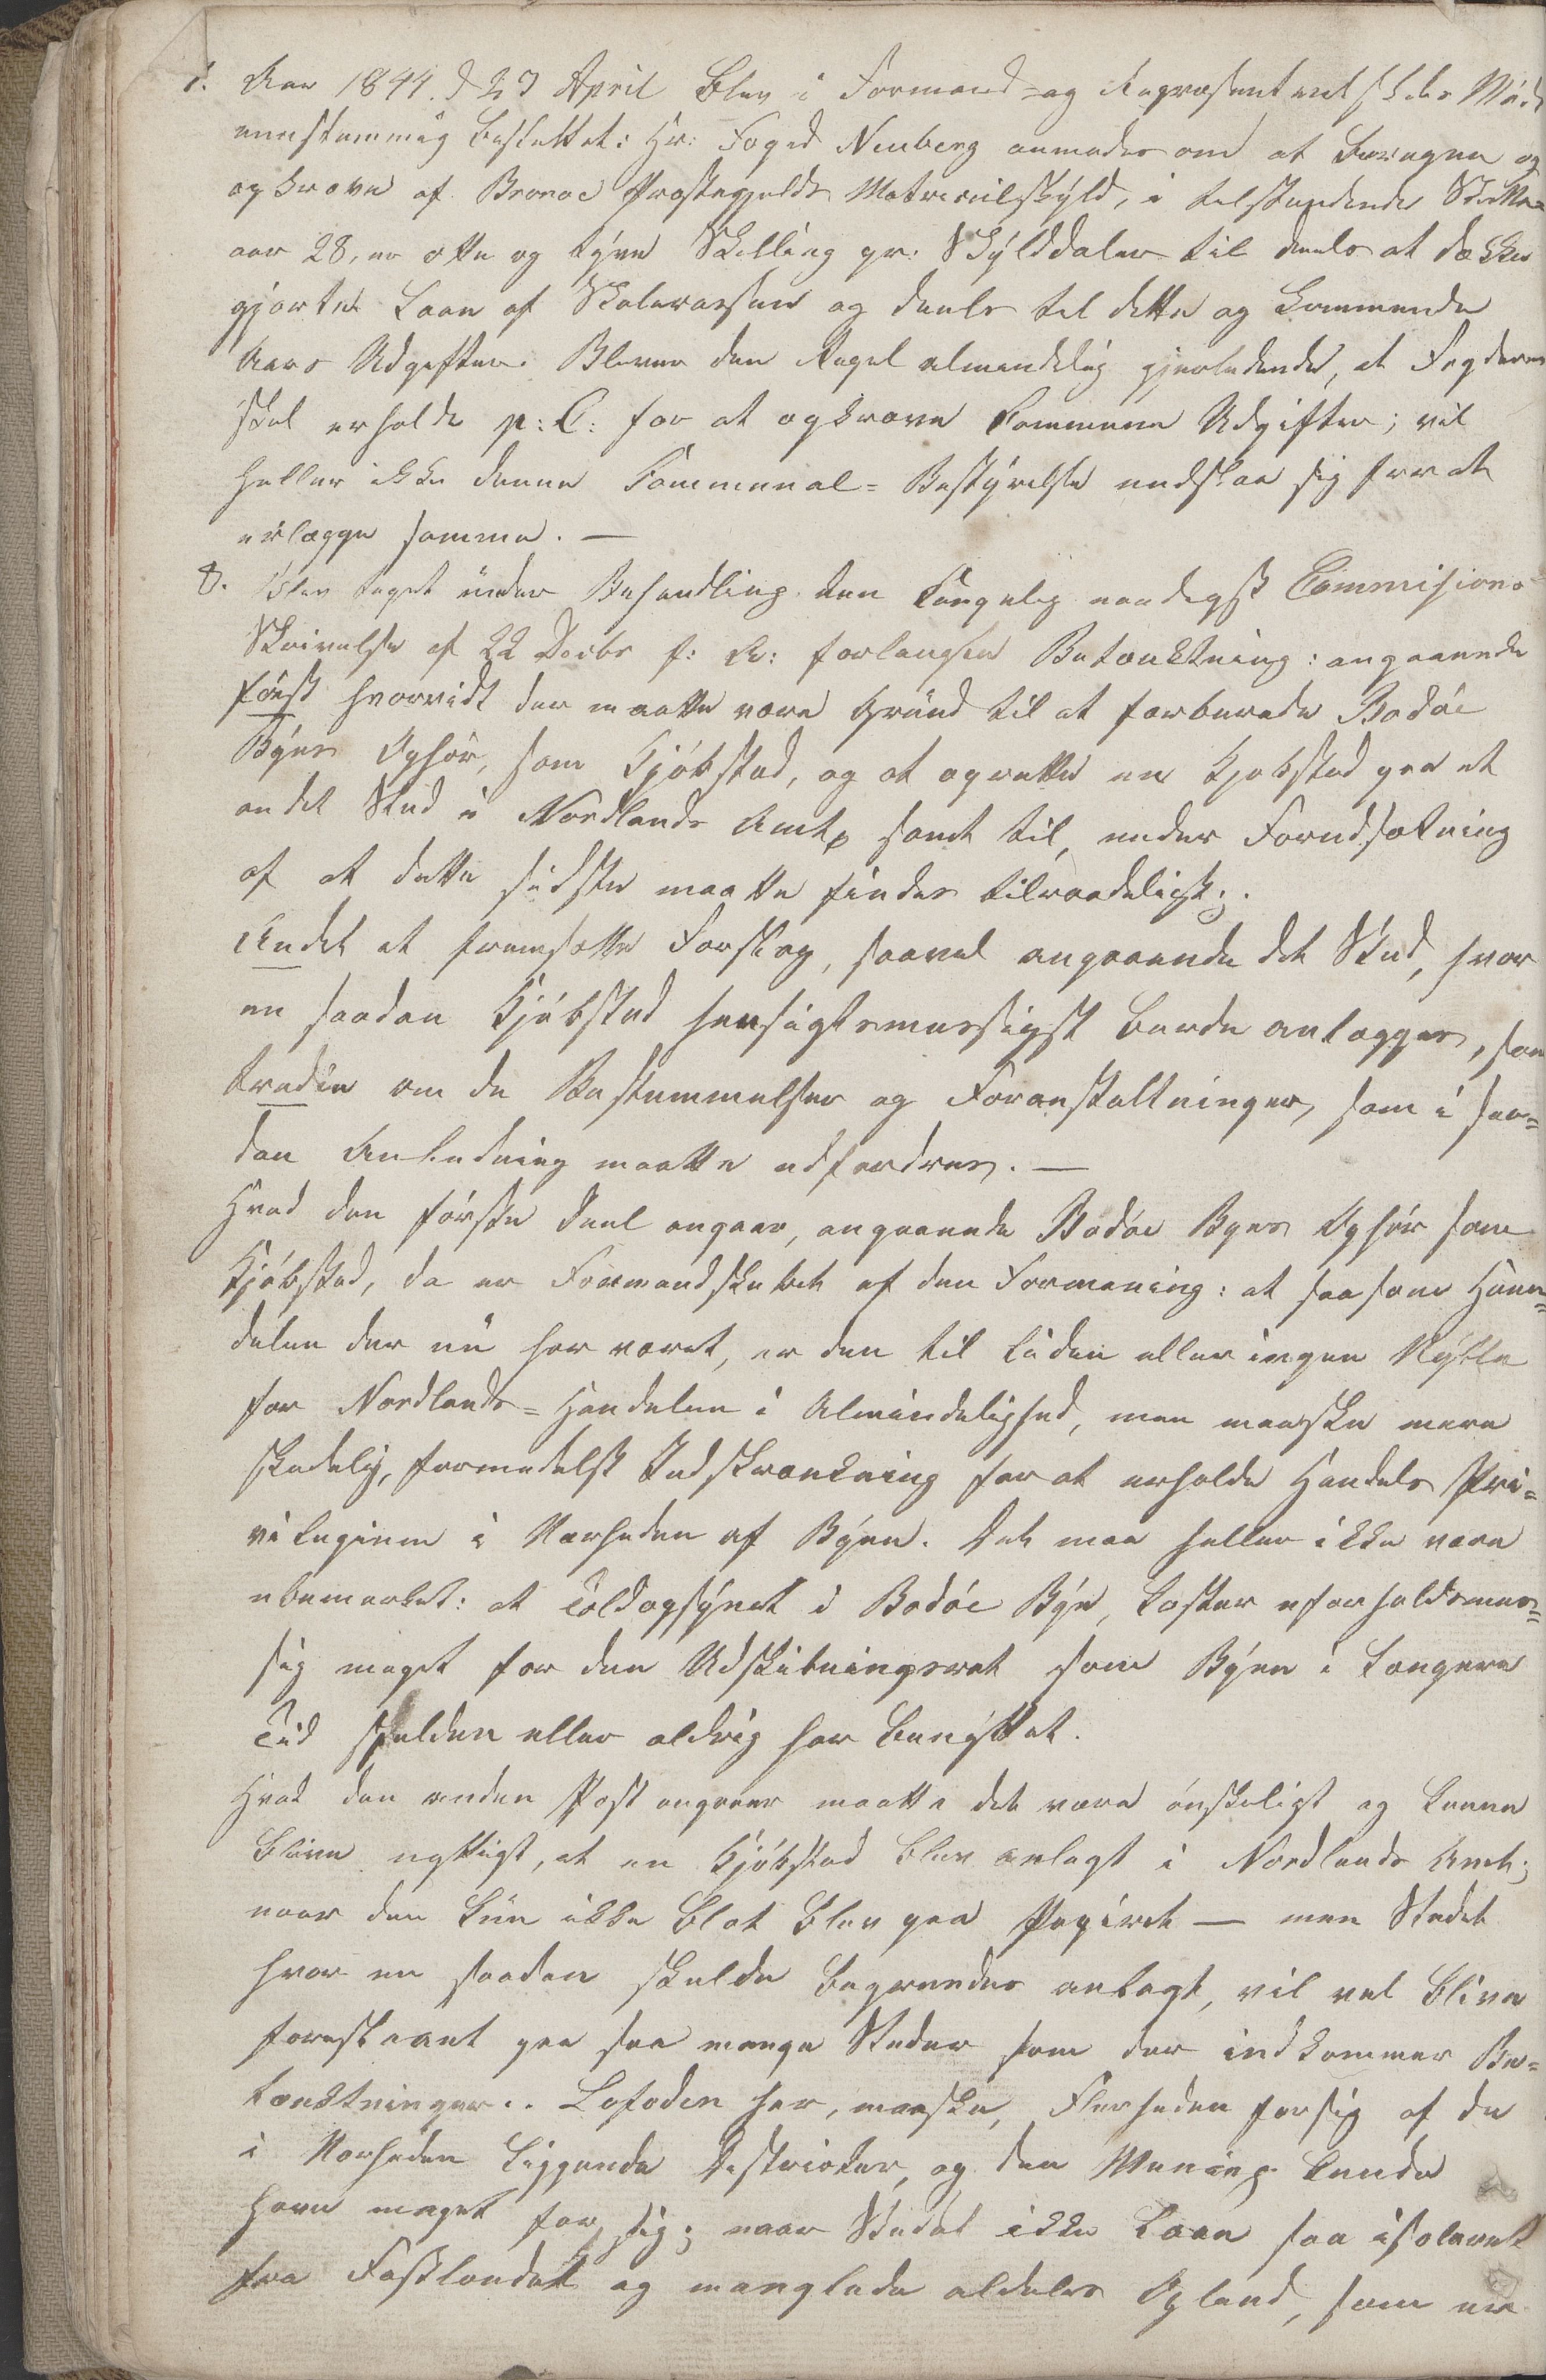 7. Aar 1844. d 23 April blev i Formand- og Repræsentantskabs Möde
eenstemmig besluttet: Hr: Foged Neuberg anmodes om at beregne og
opkræve af Brønøe Præstegjelds Matriculskyld, i tilstundende Skatte
aar 28, er otte og tyve Skilling pr: Skylddaler til deels at dække
gjorte Laan af Skolecassen og deels til dette og kommende
Aars Udgifter. Bliver den Regel almindelig gjeldende, at Fogderne
skal erholde p: C: for at opkræve Commune Udgifter; vil
heller ikke denne Communal-Bestyrelse undslaae sig for at
erlægge samme. —
8. Blev taget under Behandling den Kongelig naadigst Commisions
Skrivelse af 22 Decbr f: A: forlangte Betænktning: angaaende
först hvorvidt der maatte være Grund til at forberede Bodöe
Byes Ophör, som Kjöbstad, og at oprette en Kjøbstad paa et
andet Sted i Nordlands Amt, samt til, under Forudsætning
af at dette sidste maatte findes tilraadeligt;.
Andet at fremsætte Forslag, saavel angaaende det Sted, hvor
en saadan Kjöbstad hensigtsmessigst burde anlægges, som
tredie om de Bestemmelser og Foranstaltninger, som i saa=
dan Anledning maatte udfordres. —
Hvad den förste Deel angaar, angaaende Bodöe Byes Ophör som
Kjöbstad, da er Formandskabet af den Formening: at saasom Han=
delen der nu har været, er den til liden eller ingen Nytte
for Nordlands=Handelen i Almindelighed, men maaske mere
skadelig, formedelst Indskrænkning for at erholde Handels Pri=
vilegium i Nærheden af Byen. Det maa heller ikke være
ubemærket: at Toldopsynet i Bodöe Bye, koster uforholdsmes=
sig meget for den Udskibningsret som Byen i længere
Tid sjelden eller aldrig har benyttet.
Hvad den anden Post angaaer maatte det være önskeligt og kunne
blive nyttigt, at en Kjöbstad blev anlagt i Nordlands Amt;
naar den kun ikke blot blev paa Papiret — men Stedet
hvor en saadan skulde begrundes anlagt, vil vel blive
foreslaaet paa saa mange Steder som der indkommer Be=
tænktninger.. Lofoden har, maaske, Fleerheden for sig af de
i Nærheden liggende Districter, og den Mening kunde
have meget for sig; naar Stedet ikke laae saa isoleret
fra Fastlandet og manglede aldeles Opland, som er